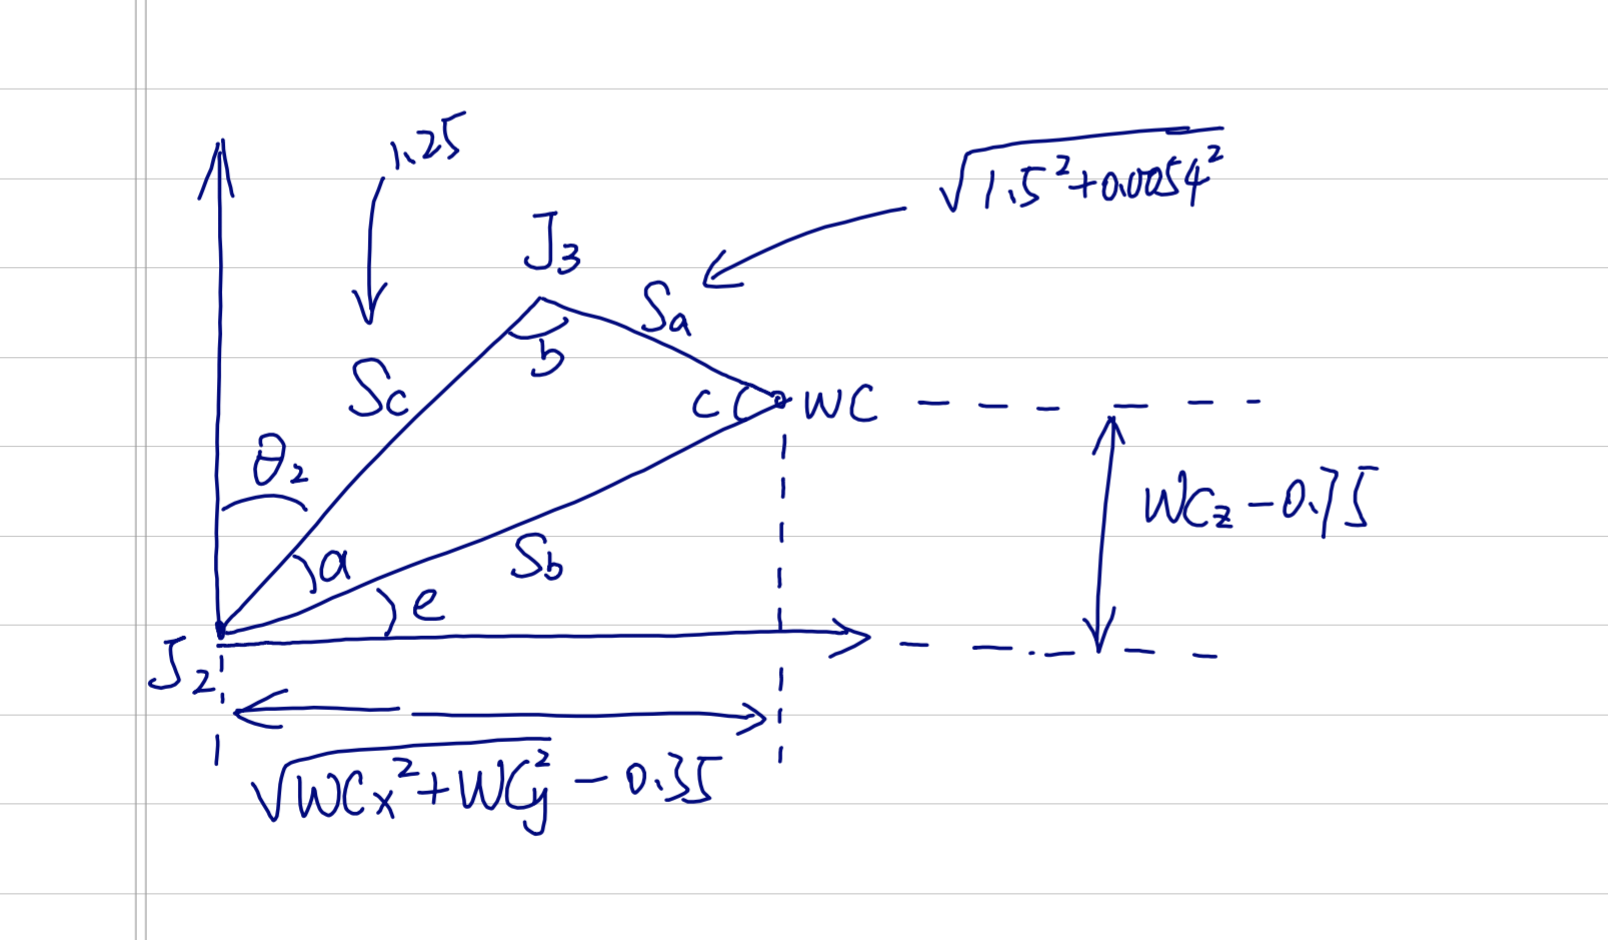 1.25
√1.5²+0.0054²
J₃
Sa
b
Sc
c WC
θ₂
WCz-0.75
a
Sb
e
J₂
√WCx²+WCy² - 0.35